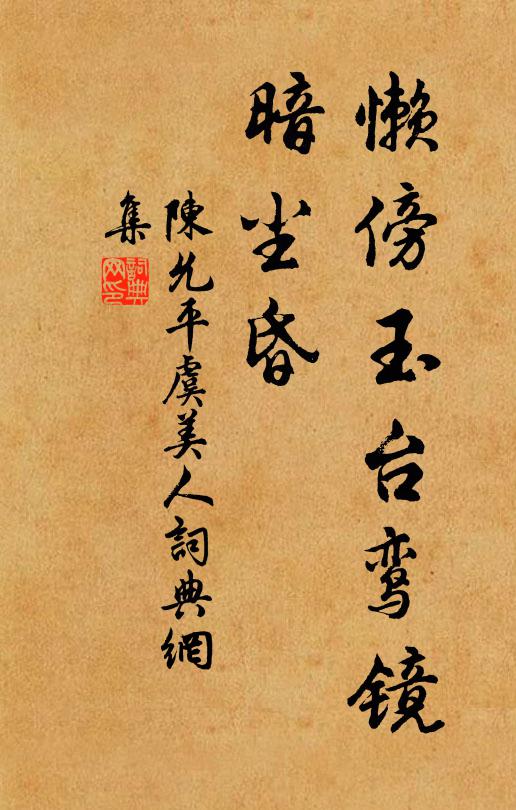 懒傍玉台鸾镜
暗尘昏
陳允平虞美人詞典網
集
詞典
网印